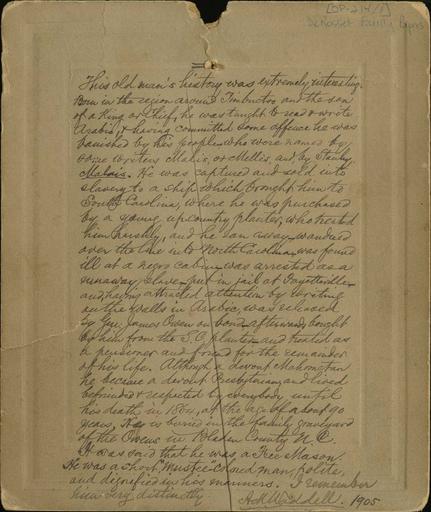 [OP-214/1]
DeRosset Family Papers
This old man's history was extremely interesting.
Born in the region around Timbuctoo and the son
of a King or Chief, he was taught to read & write
Arabic, & having committed some offence he was
banished by his people who were named by
some writers Malis, or Mellis, and by Stanley
Malais. He was captured and sold into
slavery to a ship which brought him to
South Carolina, where he was purchased
by a young upcountry planter, who treated
him harshly, and he ran away—wandered
over the line into North Carolina—was found
ill at a negro cabin—was arrested as a
runaway slave—put in jail at Fayetteville
and, having attracted attention by writing
on the walls in Arabic, was released
by Gen. James Owen on bond—afterwards bought
by him from the S.C. planter and treated as
a pensioner and friend for the remainder
of his life. Although a devout Mahometan
he became a devout Presbyterian, and lived
befriended & respected by everybody until
his death in at the age of about 90
years, He is buried in the family graveyard
of the Owens in Bladen County N.C.
It was said that he was a Free Mason.
He was a short "Mustee" colored man, polite,
and dignified in his manners. I remember
him very distinctly
A.M. Waddell. 1905